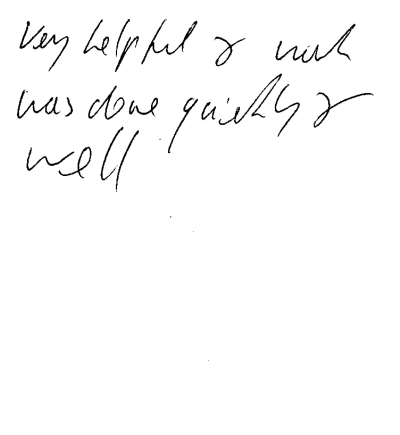 Very helpful & work
was done quickly &
well